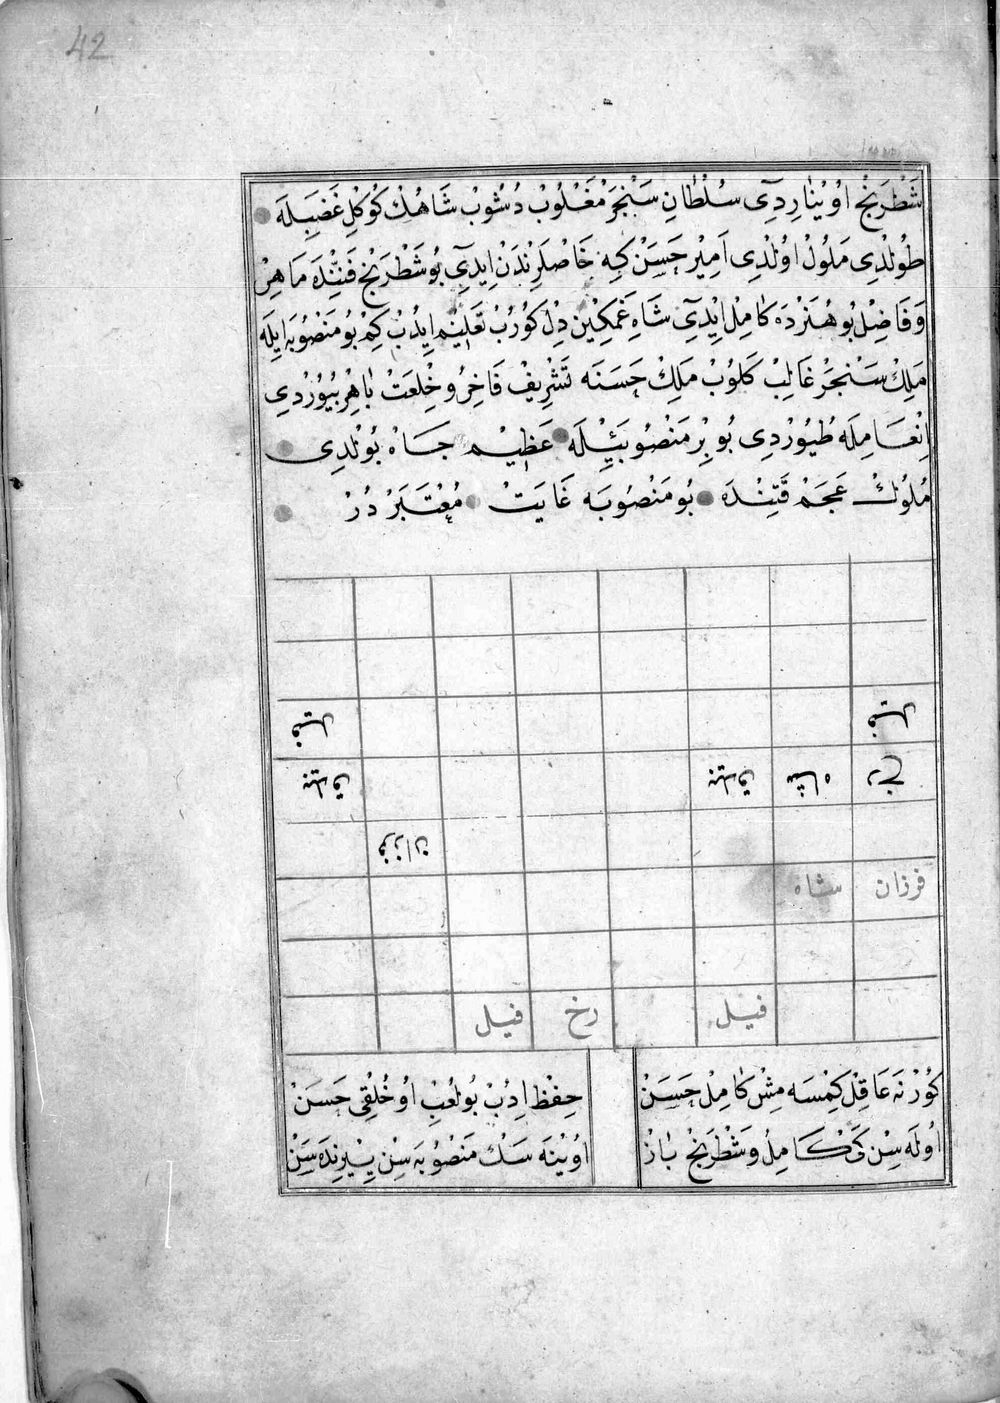 42
شَطْرَنْجْ اوُینٰارِدِی سُلْطٰانِ سَنْجَرْ مَغْلُوبْ دُشُوبْ شَاهُكْ كُوكُلِ غَضَبِلَه
طُولْدِی مَلُولْ اوُلْدِی اَمِیرْ حَسَنْ كِه خَاصْلَرِنْدَنْ اِیدِی بُو شَطْرَنْجْ فَنِّنْدَه مَاهِرْ
وَ فَاضِلْ بُو هُنَرْدَه كَامِلْ اِیْدِی شَاهِ غَمْكِینْ دِلْ كُورُبْ تَعْلِیمْ اِیدُبْ كِمْ بُو مَنْصُوبَه اِیلَه
مَلِكْ سَنْجَرْ غَالِبْ كَلُوبْ مَلِكْ حَسَنَه تَشْرِیفْ فَاخِرْ وُ خِلْعَتْ بَاهِرْ بُیُورْدِی
اِنْعَامِلَه طُیُورْدِی بُو بِرْ مَنْصُوبَیْلَه عَظِیمْ جَاهْ بُولْدِی
مُلُوكْ عَجَمْ قَتِنْدَه بُو مَنْصُوبَه غَایَتْ مُعْتَبَرْ دُرْ
بیدق بیدق
رخ شاه
فرزان
فرزان شاه
فیل رخ فیل
كُورْ نَه عَاقِلْ كِمْسَه مِشْ كَامِلْ حَسَنْ حِفْظْ اِدُبْ بُو لُعْبِ اوُ خُلْقِی حَسَنْ
اوُلَه سِنْ كَامِلْ وُ شَطْرَنْجْ بَازْ اوُینَه سَكْ مَنْصُوبَه سِنْ یِیرِنْدَه سَنْ